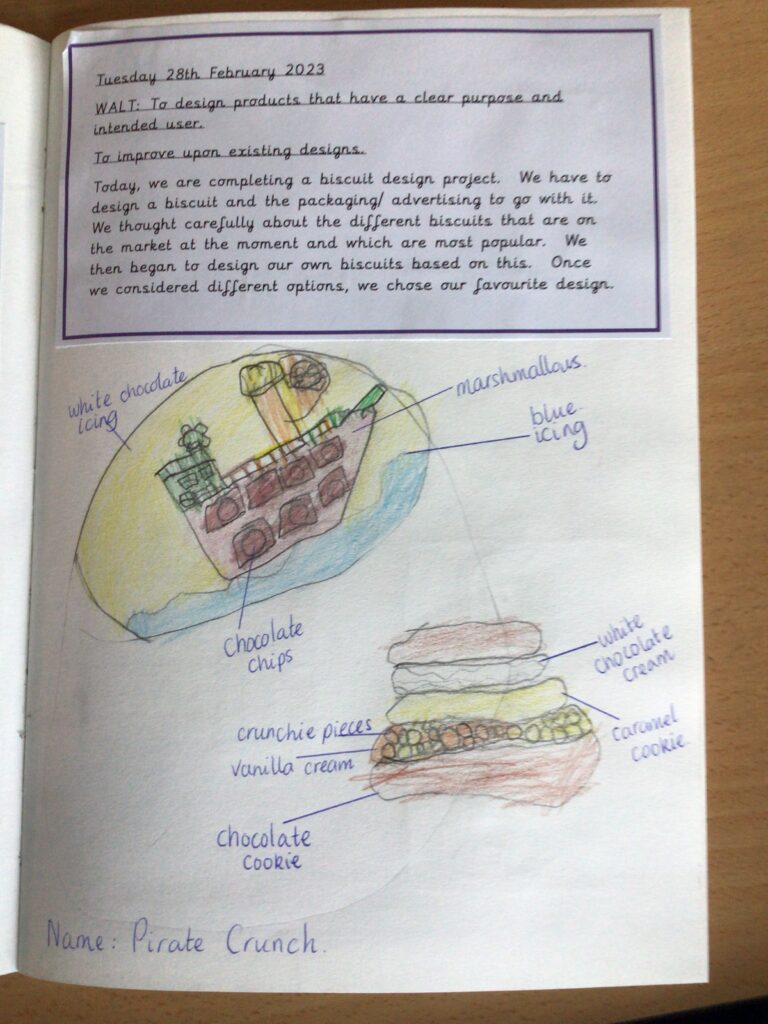 Tuesday 28th February 2023
WALT: To design products that have a clear purpose and
intended user.
To improve upon existing designs.
Today, we are completing a biscuit design project. We have to
design a biscuit and the packaging/ advertising to go with it.
We thought carefully about the different biscuits that are on
the market at the moment and which are most popular. We
then began to design our own biscuits based on this. Once
we considered different options, we chose our favourite design.
white chocolate
icing
marshmallows.
blue
icing
chocolate
chips
white
chocolate
cream
crunchie pieces
vanilla cream
caramel
cookie.
chocolate
cookie
Name: Pirate Crunch.